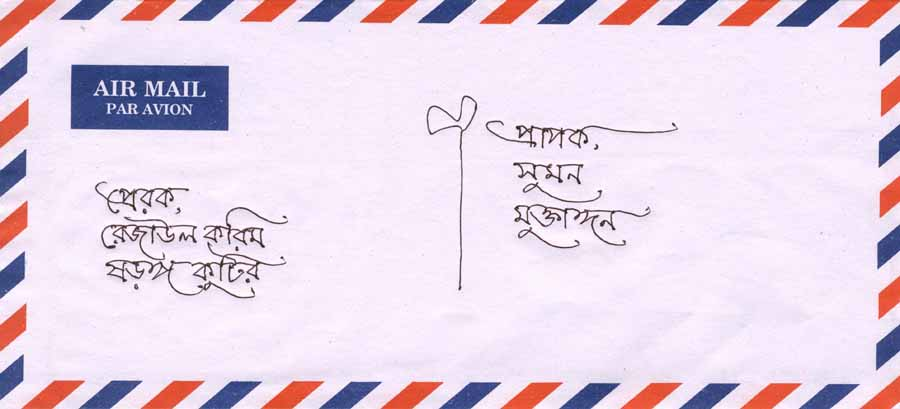 AIR MAIL
PAR AVION
প্রেরক,
রেজাউল করিম
ষড়ঙ্গ কুটির
প্রাপক,
সুমন
মুক্তাঙ্গন